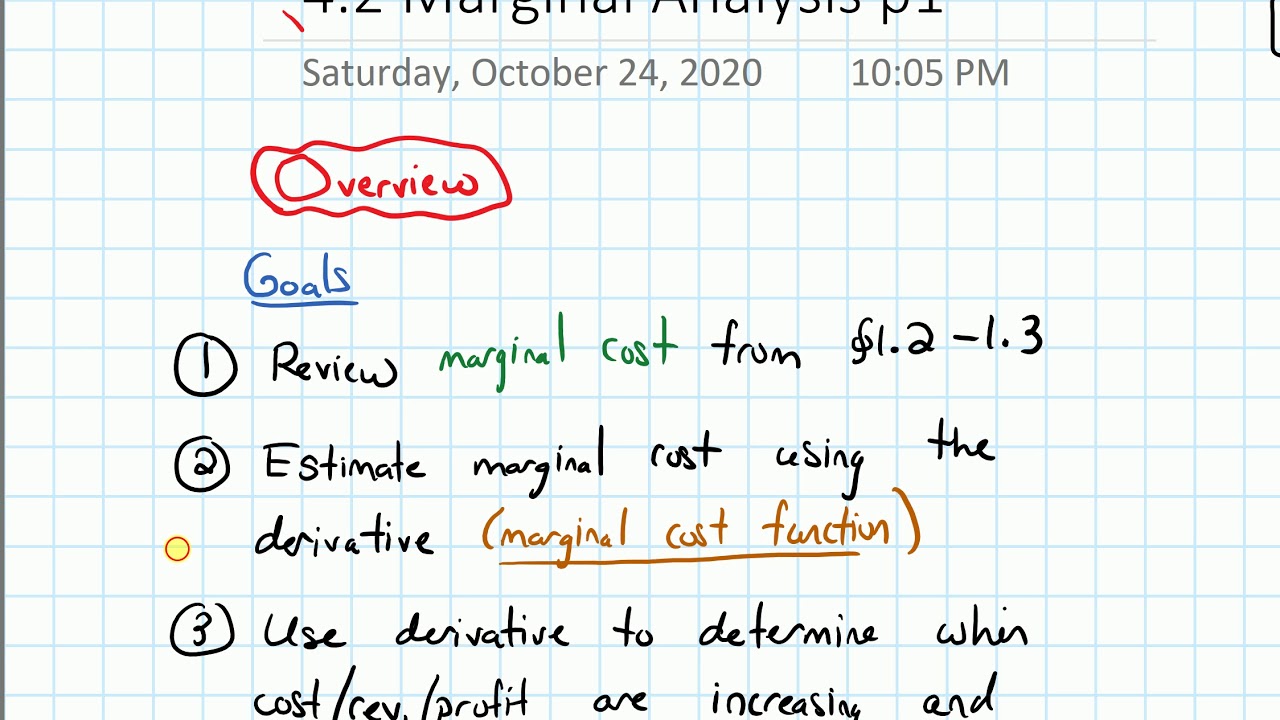 4.2 Marginal Analysis p1
Saturday, October 24, 2020 10:05 PM
Overview
Goals
① Review marginal cost from §1.2 - 1.3
② Estimate marginal cost using the
derivative (marginal cost function)
③ Use derivative to determine when
cost/rev./profit are increasing and